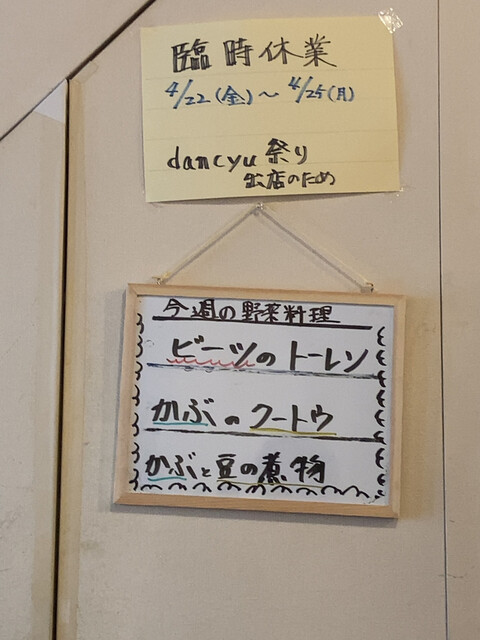 臨時休業
4/22(金)～4/25(月)
dancyu祭り
出店のため
今週の野菜料理
ビーツのトーレン
かぶのクートゥ
かぶと豆の煮物